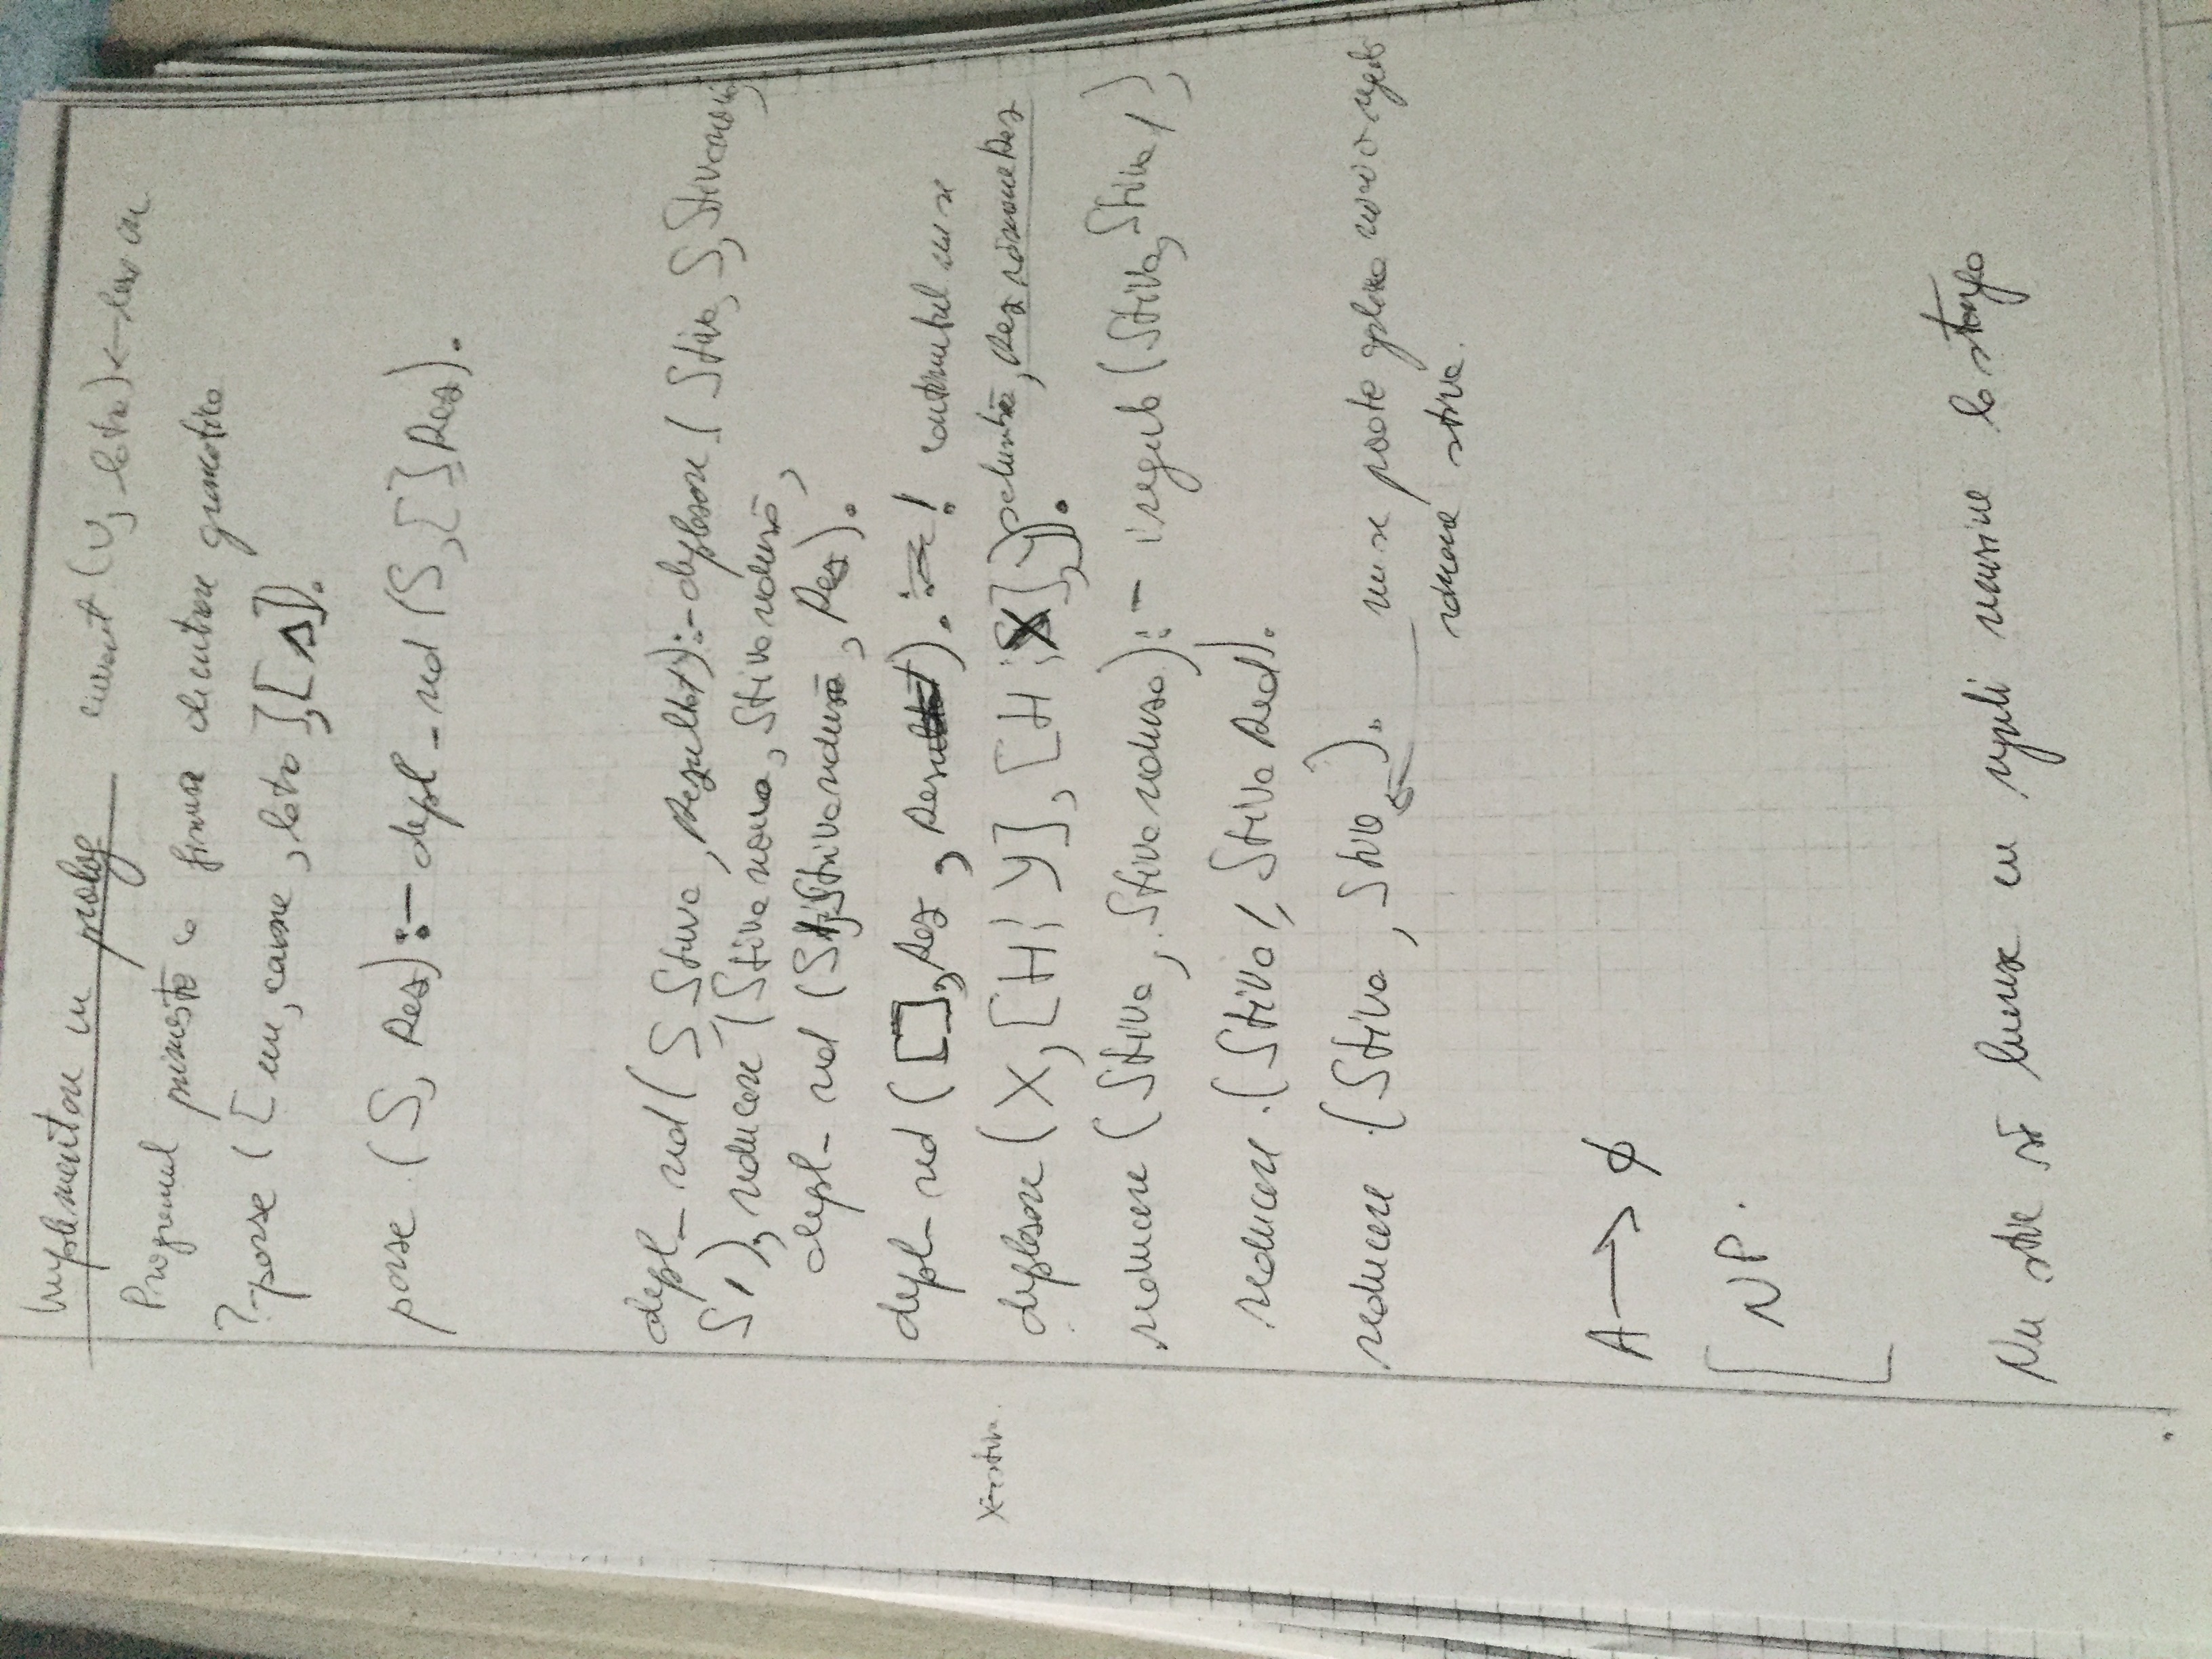 Implementare in prolog cuvant (V, latra) ← lexicon
Programul primeste ca fisier de intrare gramatica
?-parse ([un, caine, latra],[s]).
parse (S, Rez):- depl_red (S,[],Rez).
depl_red (S, Stiva, Rezultat):-deplasare (Stiva, S, Stivanouă,
S1), reducere (Stivanoua, Stivaredusă,
depl_red (S1, Stivaredusă, Rez).
depl_red ([], Rez, Rez). :- ! continutul nu se
X=stiva.
schimbă, Rez rămane Rez
deplasare (X, [H¦Y], [H¦X],Y).
reducere (Stiva, Stivaredusa):- iregula (Stiva, Stiva1),
reducere (Stiva1, StivaRed).
reducere (Stiva, Stiva). nu se poate aplica nici o regula
rămane stiva.
A → ϕ
[ NP.
Nu stie să lucreze cu reguli recursive la stanga